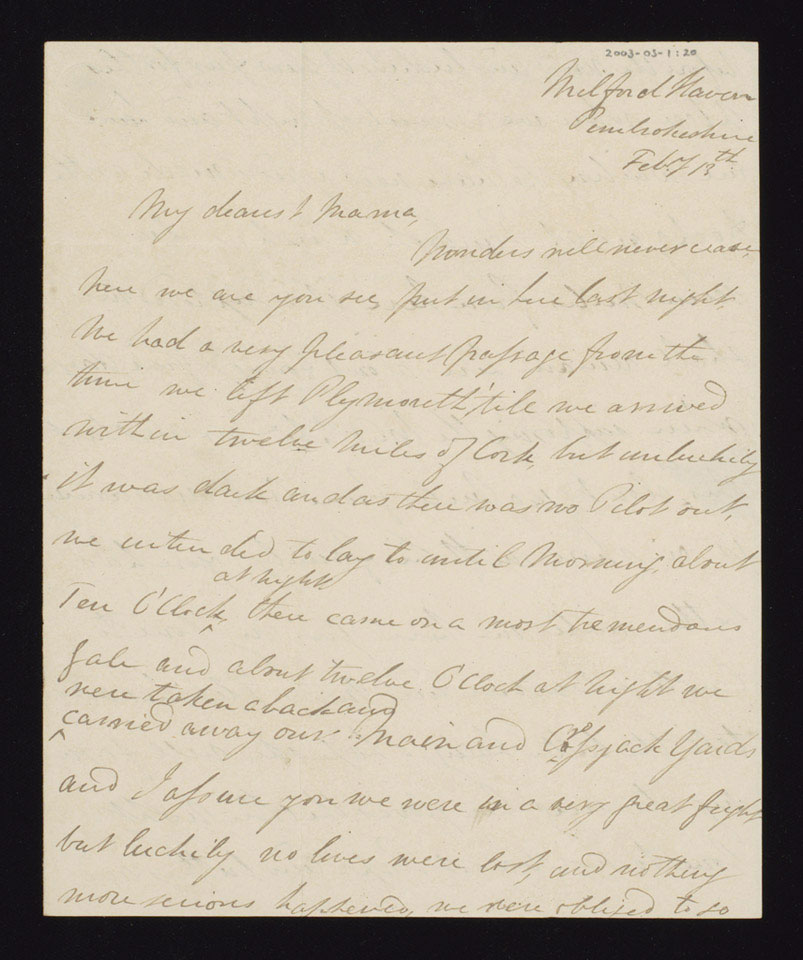 2003-05-1:20
Milford Haven
Pembrokeshire
Feby 13th
My dearest Mama,
Wonders will never cease,
here we are you see, put in here last night.
We had a very pleasant passage from the
time we left Plymouth 'till we arrived
within twelve Miles of Cork, but unluckily
it was dark and as there was no Pilot out,
we intended to lay to until Morning, about
at night
Ten O'Clock, ^ there came on a most tremendous
gale and about twelve O'Clock at night we
were taken aback and
^ carried away our Main and Crossjack Yards
and I assure you we were in a very great fright
but luckily no lives were lost, and nothing
more serious happened, we were obliged to so